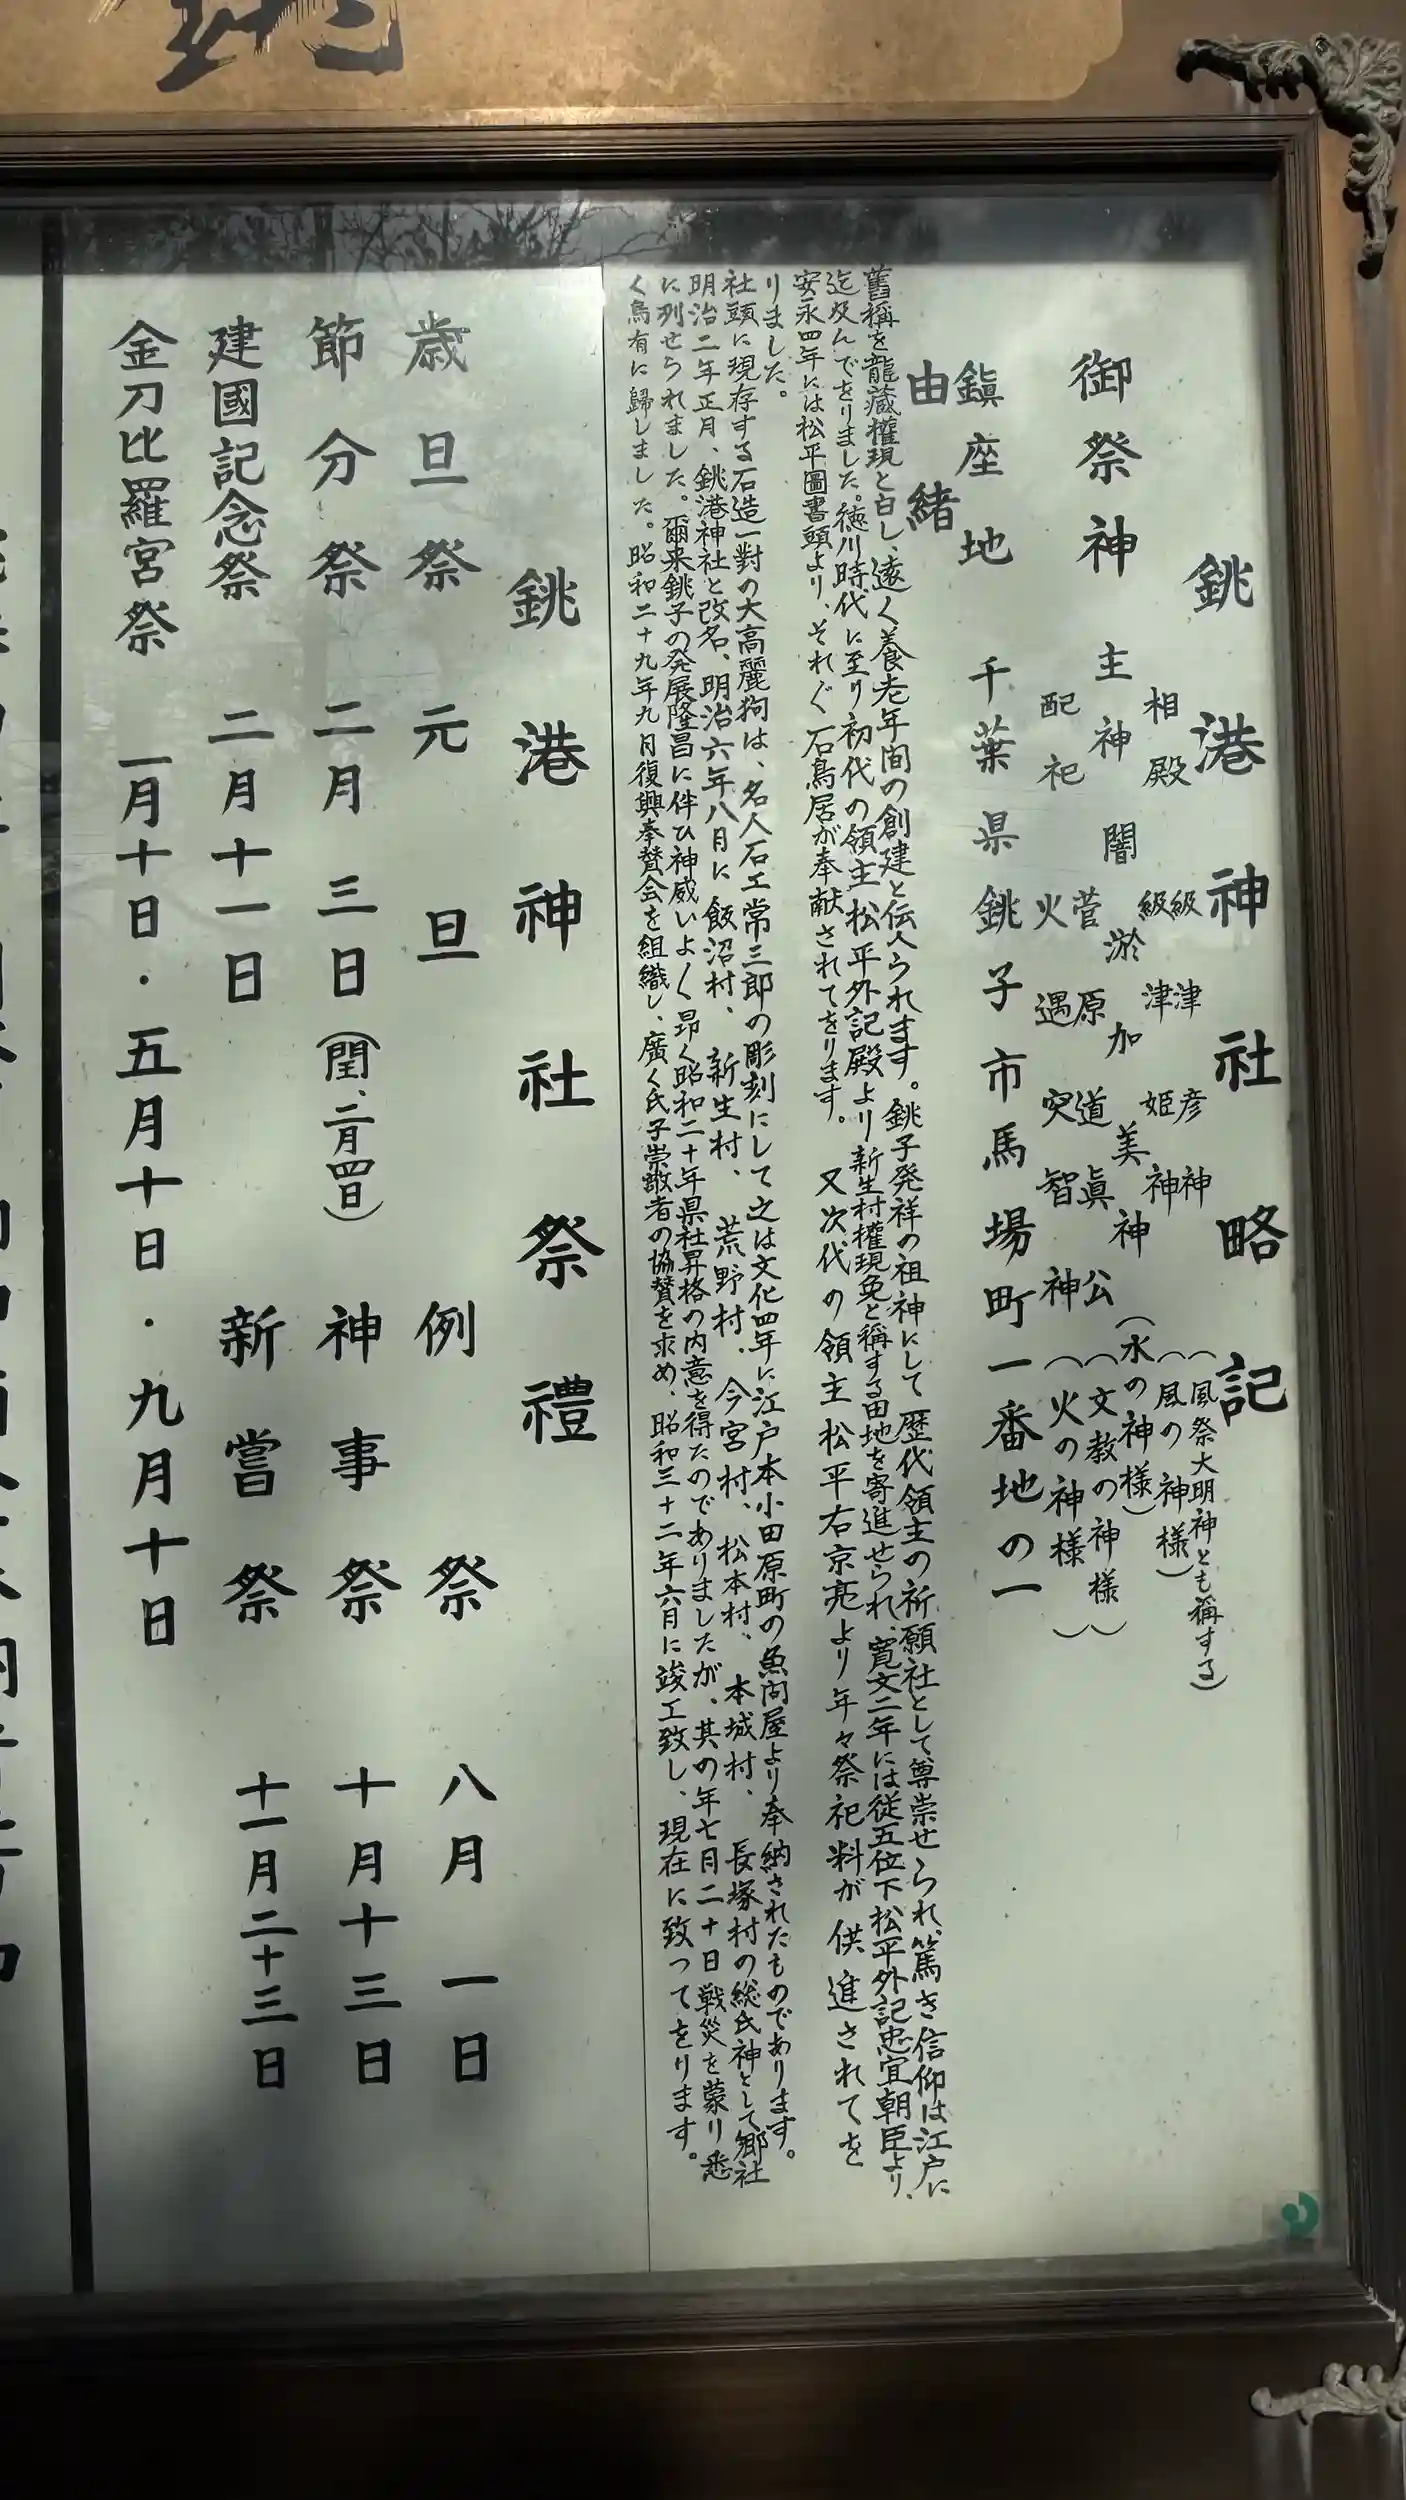 銚港神社略記
御祭神
相殿 級津彦神 (風祭大明神とも稱する)
級津姫神 (風の神様)
主神 闇淤加美神 (水の神様)
配祀 菅原道眞公 (文教の神様)
火遇突智神 (火の神様)
鎮座地 千葉県銚子市馬場町一番地の一
由緒
舊稱を龍藏權現と白し、遠く養老年間の創建と伝へられます。銚子発祥の祖神にして歴代領主の祈願社として尊崇せられ、篤き信仰は江戸に
迄及んでをりました。徳川時代に至り初代の領主松平外記殿より新生村權現免と稱する田地を寄進せられ、寛文二年には従五位下松平外記忠宜朝臣より、
安永四年には松平圖書頭より、それぐ石鳥居が奉献されてをります。又次代の領主松平右京亮より年々祭祀料が供進されてを
りました。
社頭に現存する石造一對の大高麗狗は、名人石工常三郎の彫刻にして之は文化四年に江戸本小田原町の魚問屋より奉納されたものであります。
明治二年正月、銚港神社と改名、明治六年八月に飯沼村、新生村、荒野村、今宮村、松本村、本城村、長塚村の総氏神として郷社
に列せられました。爾来銚子の発展隆昌に伴ひ神威いよく昂く昭和二十年県社昇格の内意を得たのでありましたが、其の年七月二十日戦災を蒙り悉
く烏有に歸しました。昭和二十九年九月復興奉賛会を組織し、廣く氏子崇敬者の協賛を求め、昭和三十二年六月に竣工致し、現在に致つてをります。
銚港神社祭禮
歳旦祭 元旦 例祭 八月一日
節分祭 二月三日(閏、二月四日) 神事祭 十月十三日
建國記念祭 二月十一日 新嘗祭 十一月二十三日
金刀比羅宮祭 一月十日・五月十日・九月十日